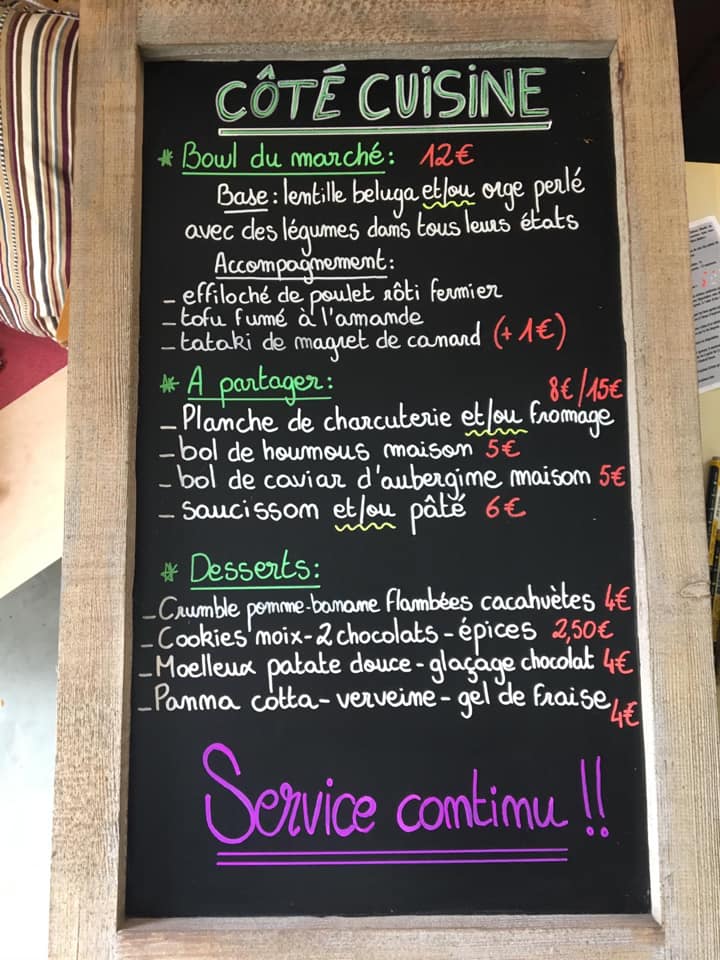 CÔTÉ CUISINE
* Bowl du marché : 12€
Base : lentille beluga et/ou orge perlé
avec des légumes dans tous leurs états
Accompagnement :
- effiloché de poulet rôti fermier
- tofu fumé à l'amande
- tataki de magret de canard (+ 1€)
* A partager : 8€/15€
- Planche de charcuterie et/ou fromage
- bol de houmous maison 5€
- bol de caviar d'aubergine maison 5€
- saucisson et/ou pâté 6€
* Desserts :
- Crumble pomme-banane flambées cacahuètes 4€
- Cookies noix - 2 chocolats - épices 2,50€
- Moelleux patate douce - glaçage chocolat 4€
- Panna cotta - verveine - gel de fraise 4€
Service continu !!